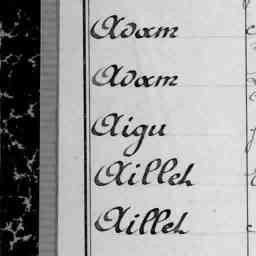 Adam
Adam
Aigu
Aillet
Aillet